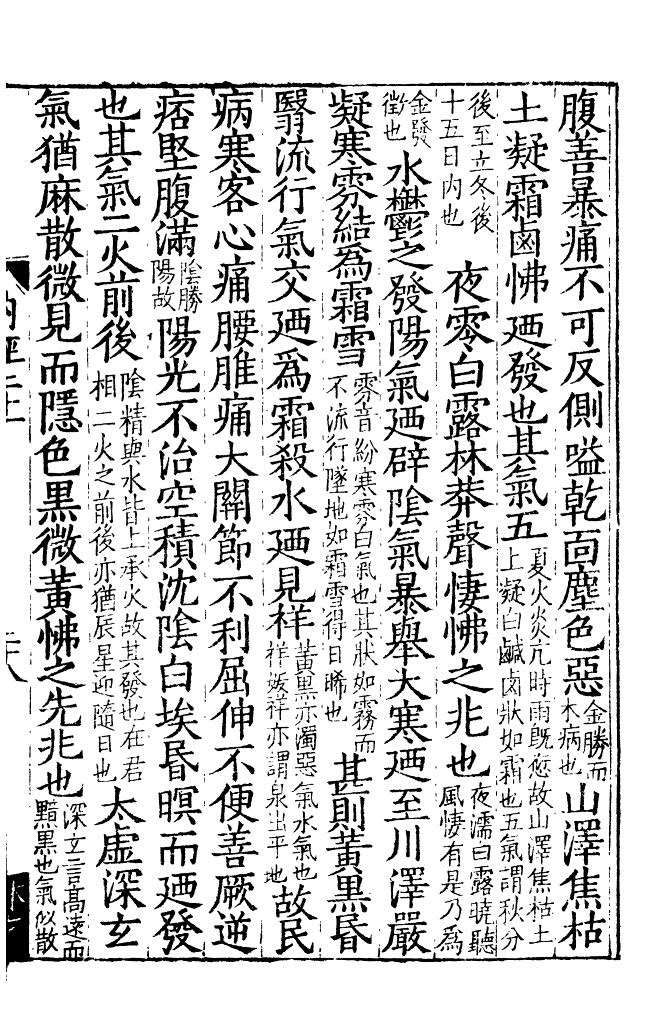 腹善暴痛不可反側嗌乾面塵色惡金勝而木病也山澤焦枯
土凝霜鹵怫廼發也其氣五夏火炎亢時雨既愆故山澤焦枯土上凝白鹹鹵狀如霜也五氣謂秋分
後至立冬後十五日內也夜零白露林莽聲悽怫之兆也夜濡白露曉聽風悽有是乃爲
金發徵也水鬱之發陽氣廼辟陰氣暴舉大寒廼至川澤嚴
凝寒雰結為霜雪雰音紛寒雰白氣也其狀如霧而不流行墜地如霜雪得日晞也甚則黃黑昏
翳流行氣交廼爲霜殺水廼見祥黃黑亦濁惡氣水氣也祥妖祥亦謂泉出平地故民
病寒客心痛腰脽痛大關節不利屈伸不便善厥逆
痞堅腹滿陰勝陽故陽光不治空積沈陰白埃昏暝而廼發
也其氣二火前後陰精與水皆上承火故其發也在君相二火之前後亦猶辰星迎隨日也太虛深玄
氣猶麻散微見而隱色黑微黃怫之先兆也深玄言高遠而黯黑也氣似散